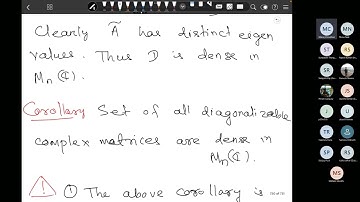 Clearly Ã has distinct eigen
values. Thus D is dense in
Mn(ℂ).
Corollary Set of all diagonalizable
complex matrices are dense in
Mn(ℂ).
! ① The above corollary is
MC